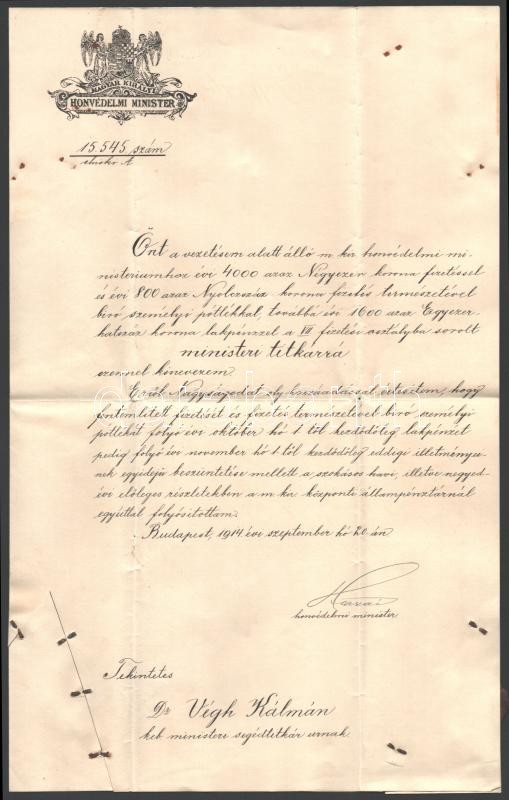 MAGYAR KIRÁLYI
HONVÉDELMI MINISTER
15.545. szám
elnöki A
Önt a vezetésem alatt álló m. kir. honvédelmi mi-
nisteriumhoz évi 4000 azaz Négyezer korona fizetéssel
és évi 800 azaz Nyolczszáz korona fizetés természetével
biró személyi pótlékkal, továbbá évi 1600 azaz Egyezer-
hatszáz korona lakpénzzel a VII fizetési osztályba sorolt
ministeri titkárrá
ezennel kinevezem.
Erről Nagyságodat oly hozzáadással értesitem, hogy
fentemlitett fizetését és fizetés természetével biró személyi
pótlékát folyó évi október hó 1 től kezdődőleg lakpénzét
pedig folyó évi november hó 1 től kezdődőleg eddigi illetményei-
nek egyidejü beszüntetése mellett a szokásos havi, illetve negyed
évi előleges részletekben a m. kir. központi állampénztárnál
egyúttal folyósitottam.
Budapest, 1914. évi szeptember hó 20. án.
Hazai
honvédelmi minister
Tekintetes
Dr Végh Kálmán
keb. ministeri segédtitkár urnak